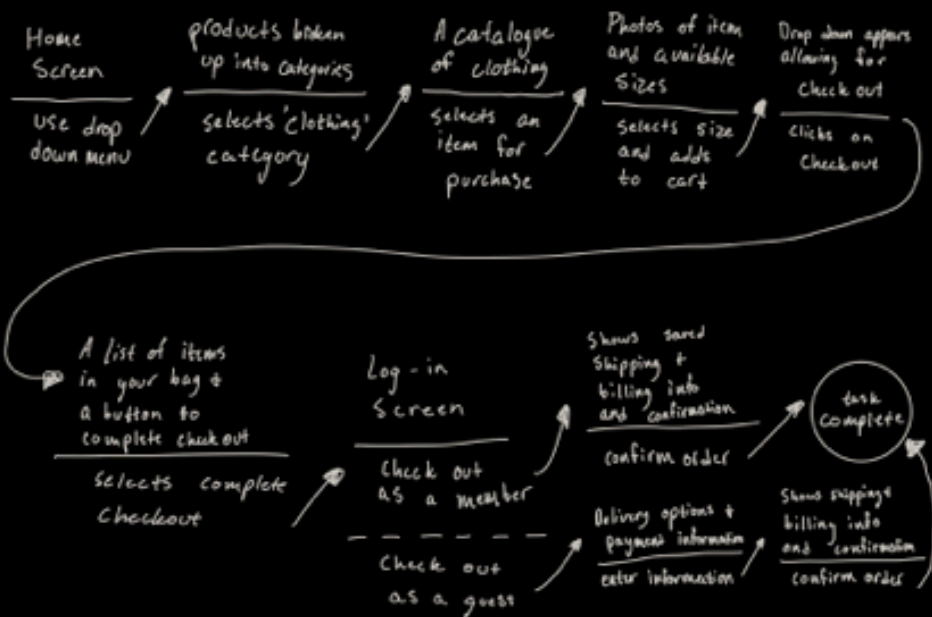 Home
Screen
use drop
down menu
products broken
up into categories
selects 'clothing'
category
A catalogue
of clothing
selects an
item for
purchase
Photos of item
and available
sizes
selects size
and adds
to cart
Drop down appears
allowing for
Check out
Clicks on
Checkout
A list of items
in your bag +
a button to
complete checkout
selects complete
checkout
Log-in
Screen
Check out
as a member
Check out
as a guess
Shows saved
Shipping +
billing info
and confirmation
confirm order
Delivery options +
payment information
enter information
Shows shipping +
billing info
and confirmation
confirm order
task
complete